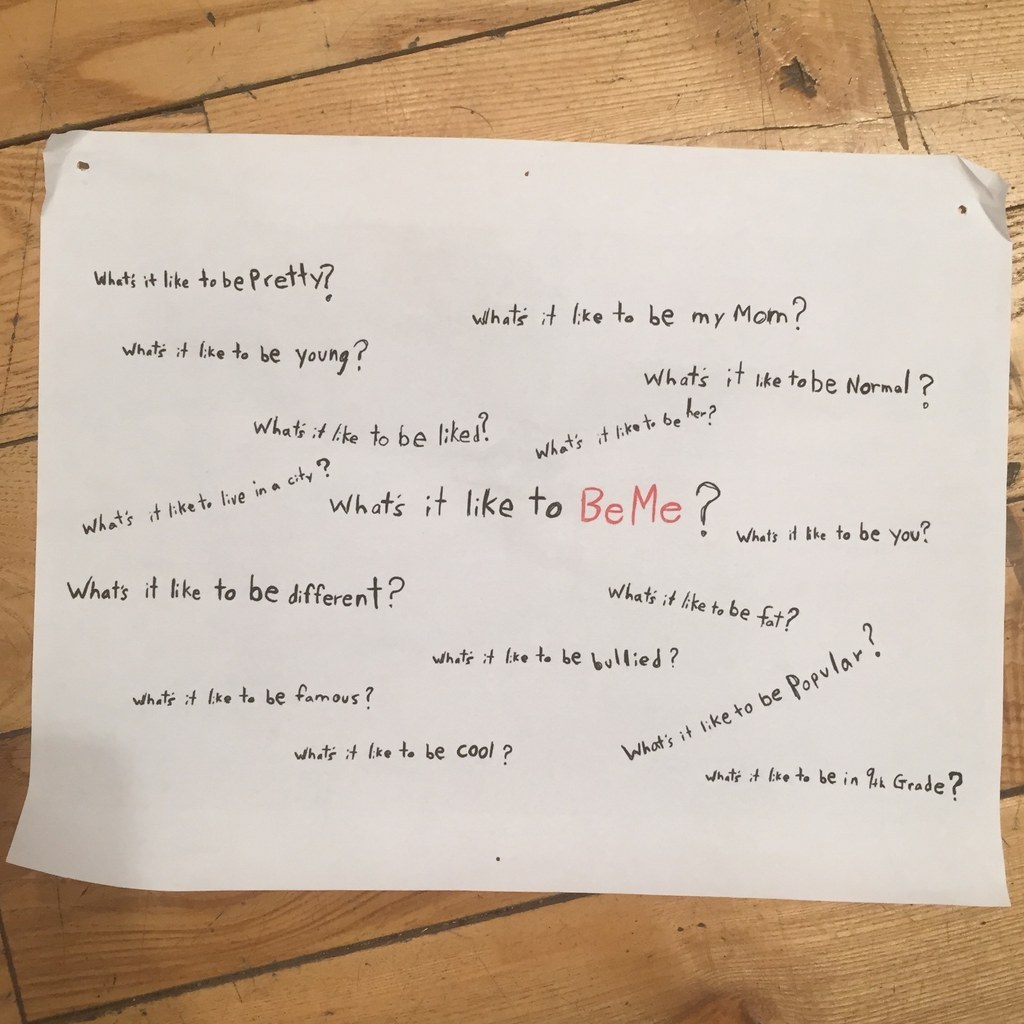 What's it like to be Pretty?
What's it like to be my Mom?
What's it like to be young?
What's it like to be Normal?
What's it like to be liked?
What's it like to be her?
What's it like to live in a city?
What's it like to Be Me?
What's it like to be you?
What's it like to be different?
What's it like to be fat?
What's it like to be bullied?
What's it like to be Popular?
What's it like to be famous?
What's it like to be cool?
What's it like to be in 9th Grade?